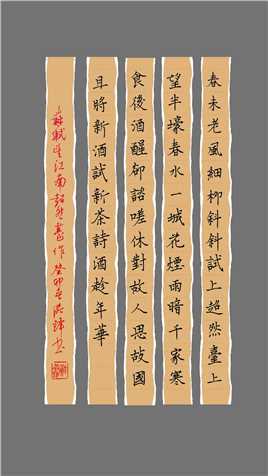 春未老風細柳斜斜試上超然臺上
望半壕春水一城花煙雨暗千家寒
食後酒醒卻諮嗟休對故人思故國
且將新酒試新茶詩酒趁年華
蘇軾望江南超然臺作癸卯